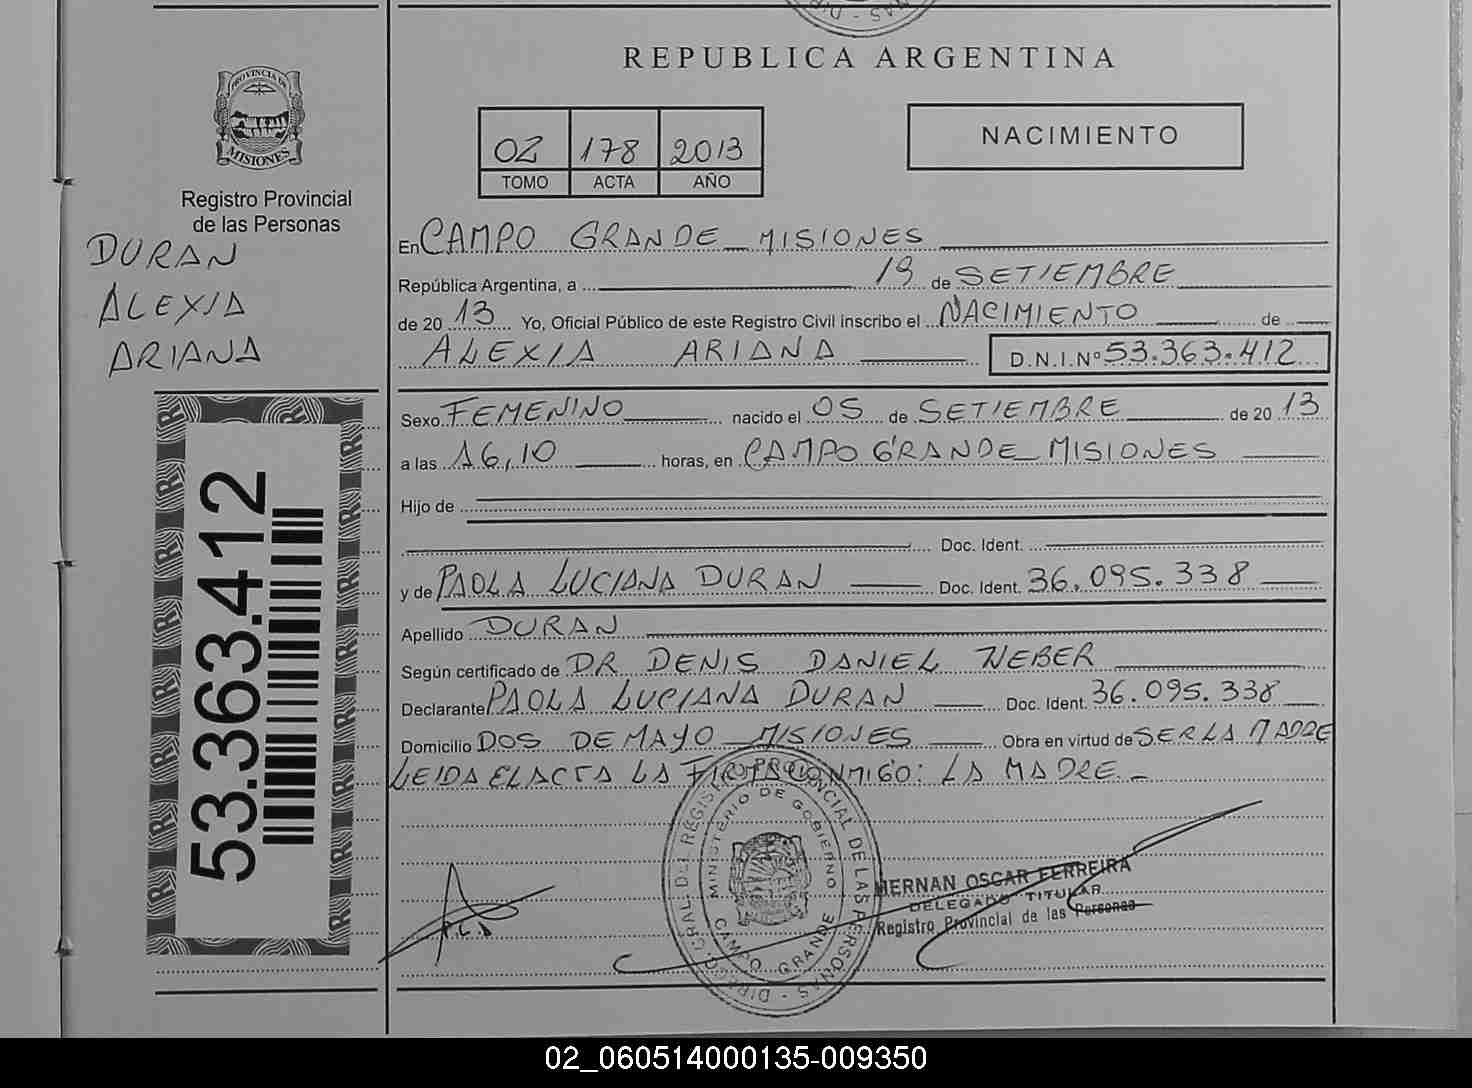 REPUBLICA ARGENTINA
PROVINCIA DE
MISIONES
Registro Provincial
de las Personas
DURAN
ALEXIA
ARIANA
53.363.412
02 178 2013
TOMO ACTA AÑO
NACIMIENTO
En CAMPO GRANDE MISIONES
República Argentina, a 19 de SETIEMBRE
de 20 13 Yo, Oficial Público de este Registro Civil inscribo el NACIMIENTO de
ALEXIA ARIANA D.N.I.Nº 53.363.412
Sexo FEMENINO nacido el 05 de SETIEMBRE de 20 13
a las 16,10 horas, en CAMPO GRANDE MISIONES
Hijo de
Doc. Ident.
y de PAOLA LUCIANA DURAN Doc. Ident. 36.095.338
Apellido DURAN
Según certificado de DR DENIS DANIEL WEBER
Declarante PAOLA LUCIANA DURAN Doc. Ident. 36.095.338
Domicilio DOS DE MAYO MISIONES Obra en virtud de SER LA MADRE
LEIDA EL ACTA LA FIRMA CONMIGO: LA MADRE
DIREC. GRAL. DEL REGISTRO PROVINCIAL DE LAS PERSONAS
MINISTERIO DE GOBIERNO
CAMPO GRANDE
HERNAN OSCAR FERREIRA
DELEGADO TITULAR
Registro Provincial de las Personas
02_060514000135-009350